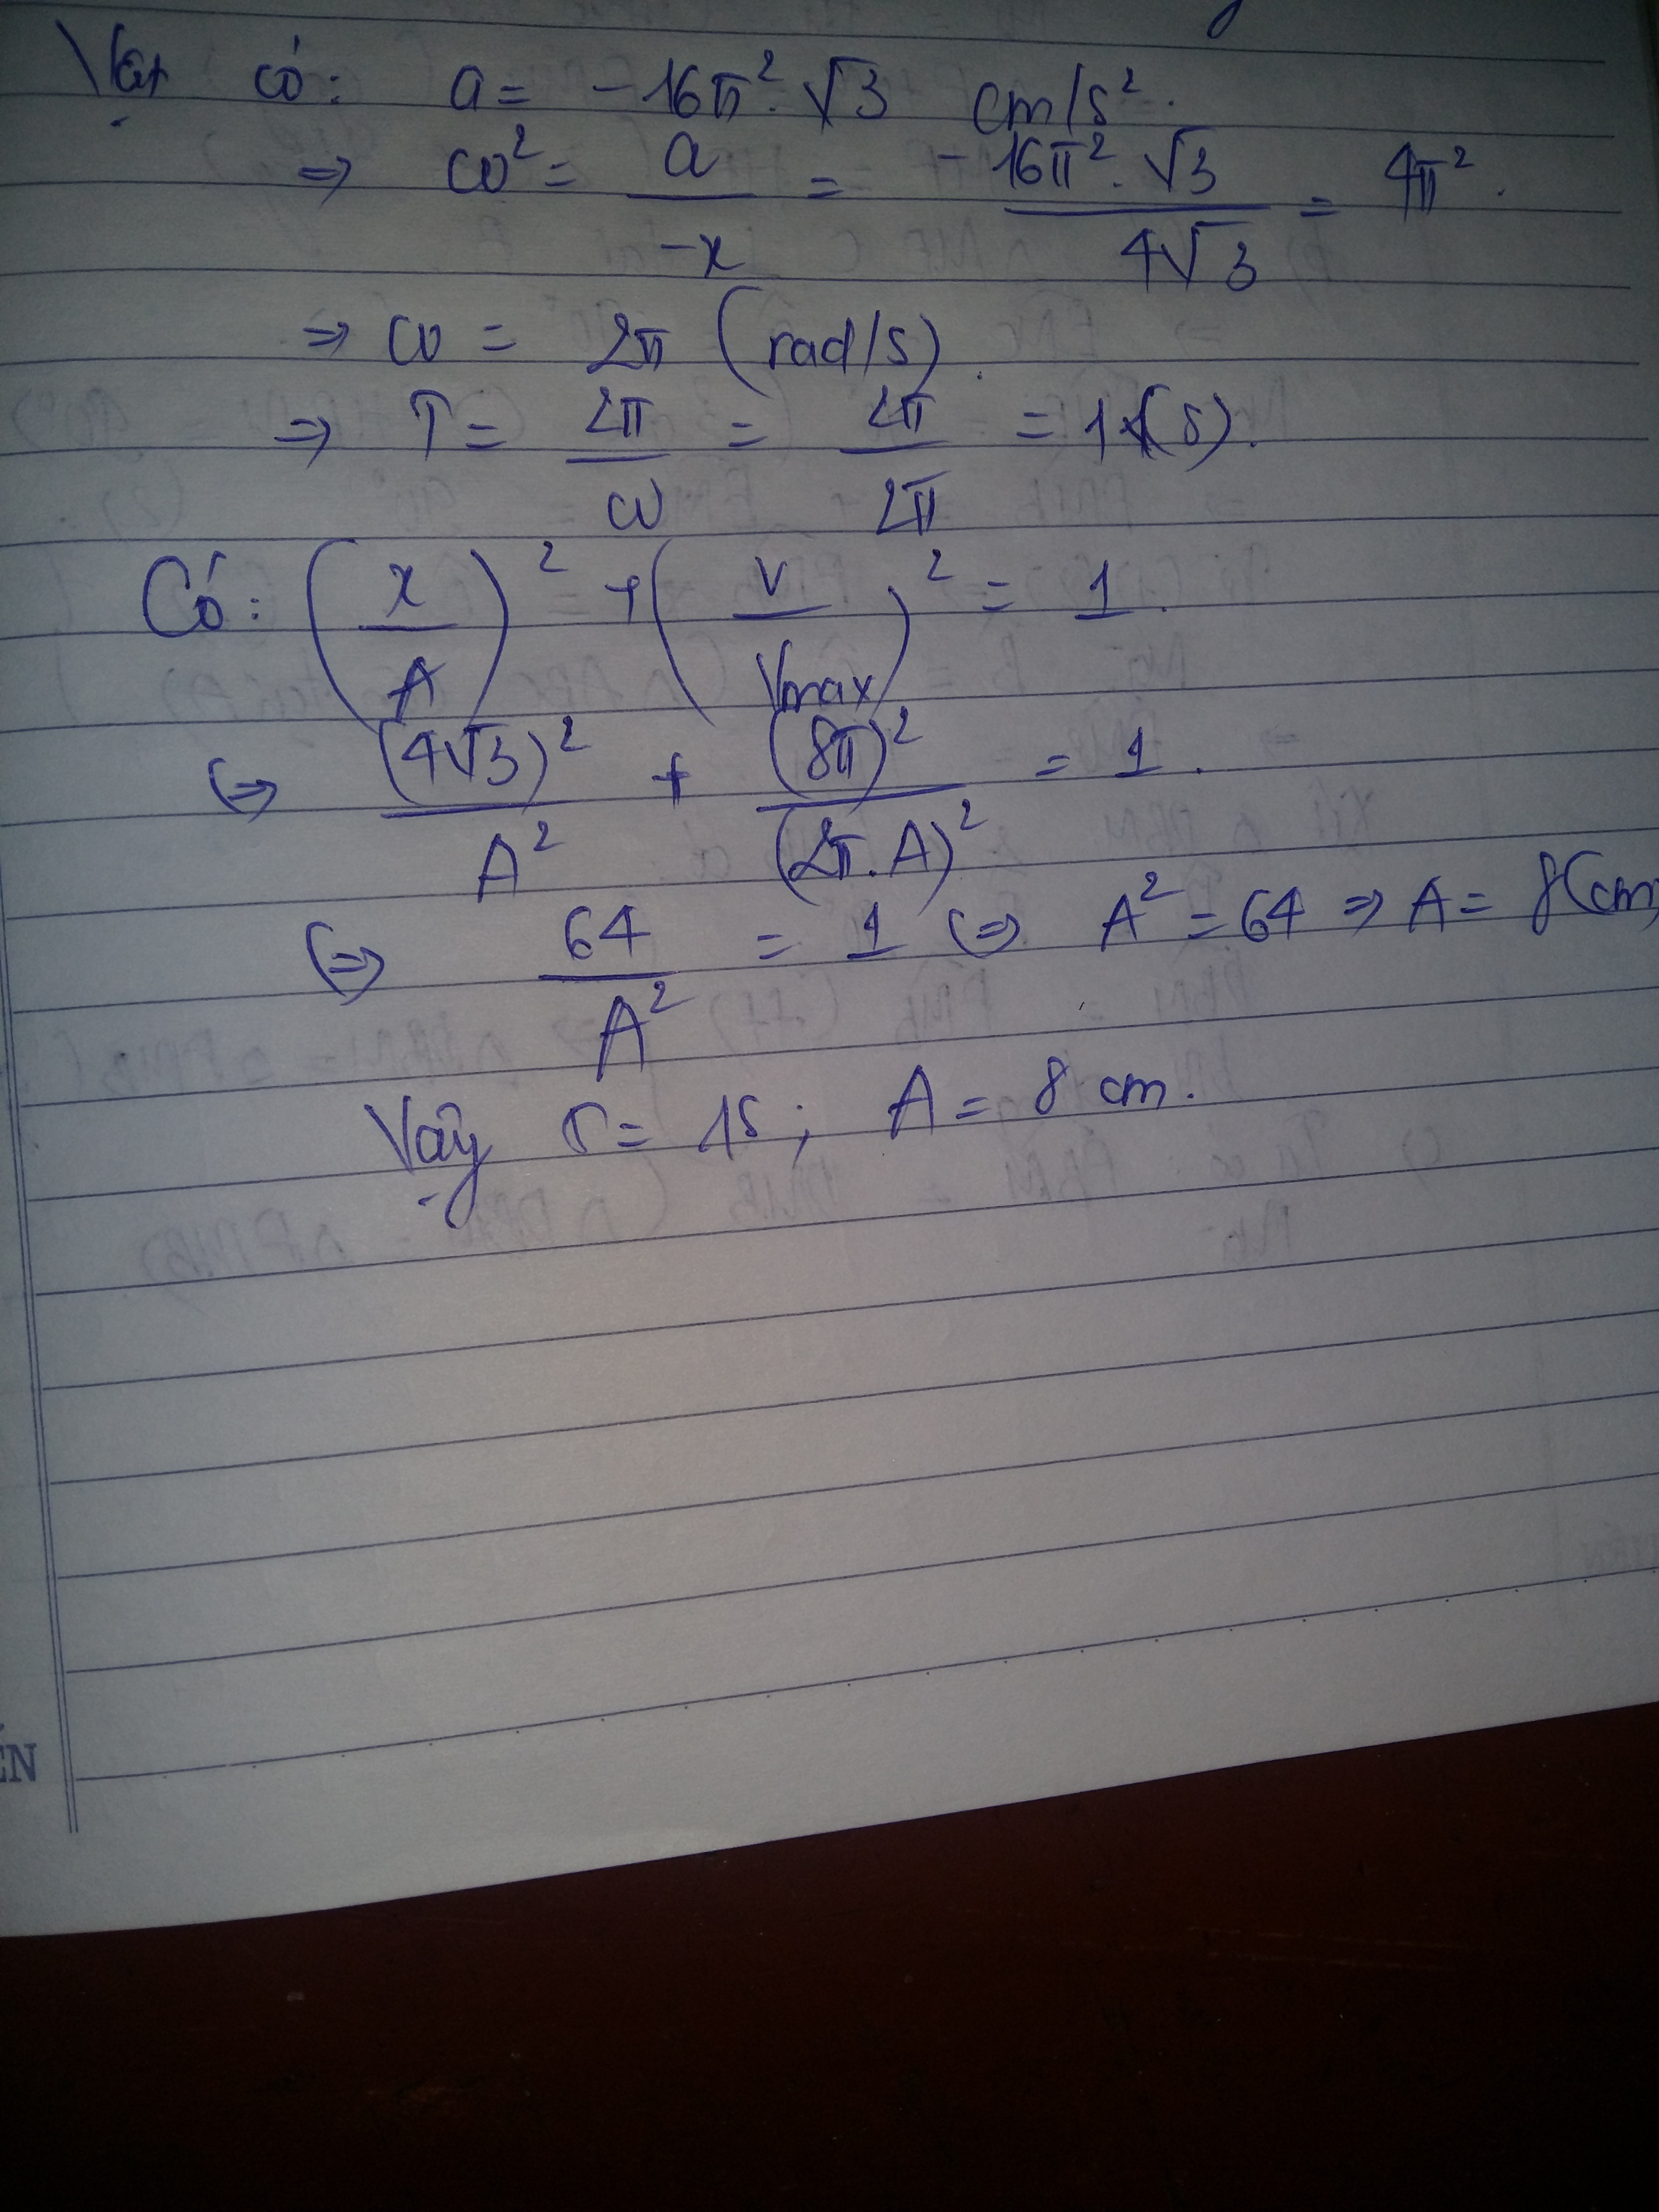 Vật có: a = -16π². √3 cm/s².
⇒ ω² = a / -x = -16π². √3 / 4√3 = 4π².
⇒ ω = 2π (rad/s).
⇒ T = 2π / ω = 2π / 2π = 1 (s).
Có: (x / A)² + (v / Vmax)² = 1.
⇔ (4√3)² / A² + (8π)² / (2π.A)² = 1.
⇔ 64 / A² = 1 ⇔ A² = 64 ⇒ A = 8(cm)
Vậy T = 1s; A = 8 cm.
ẾN